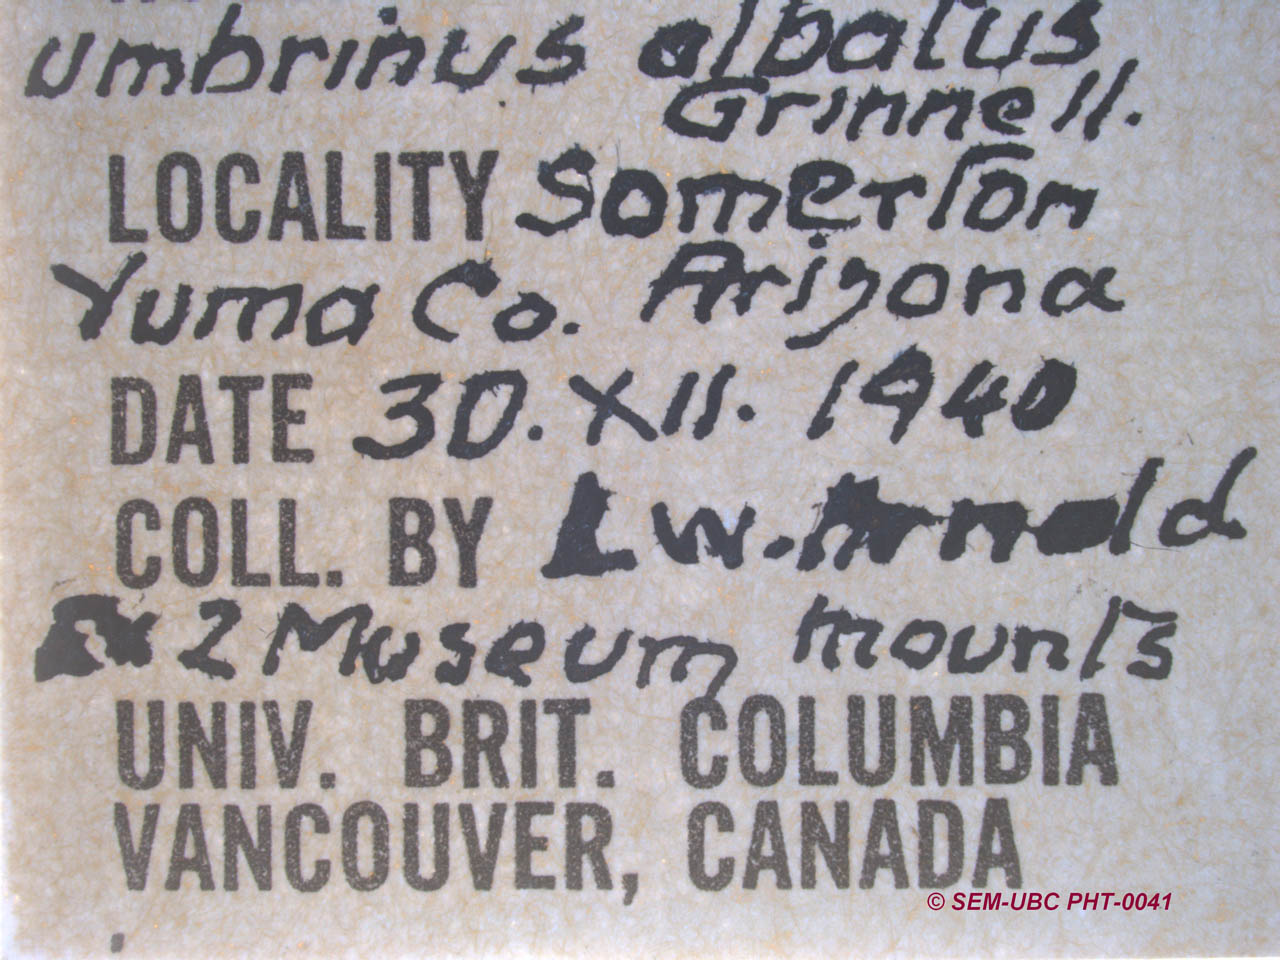 umbrinus albatus
Grinnell.
LOCALITY Somerton
Yuma Co. Arizona
DATE 30. XII. 1940
COLL. BY L W. Arnold
Ex 2 Museum mounts
UNIV. BRIT. COLUMBIA
VANCOUVER, CANADA
© SEM-UBC PHT-0041